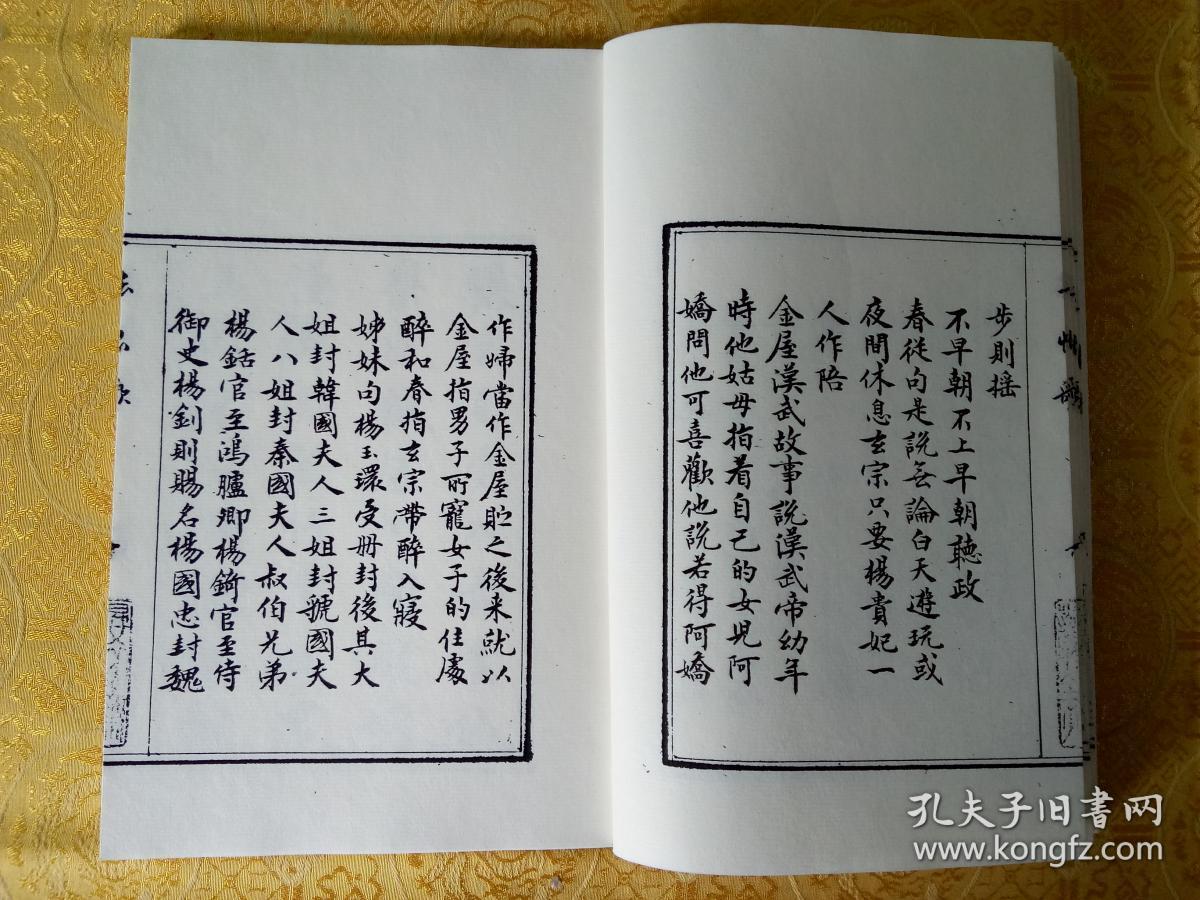 步則搖
不早朝不上早朝聽政
春從句是說無論白天遊玩或
夜間休息玄宗只要楊貴妃一
人作陪
金屋漢武故事說漢武帝幼年
時他姑母指着自己的女児阿
嬌問他可喜歡他說若得阿嬌
作婦當作金屋貯之後来就以
金屋指男子所寵女子的住處
醉和春指玄宗帶醉入寢
姊妹句楊玉環受册封後其大
姐封韓國夫人三姐封虢國夫
人八姐封秦國夫人叔伯兄弟
楊銛官至鴻臚卿楊錡官至侍
御史楊釗則賜名楊國忠封魏
孔夫子旧书网
www.kongfz.com